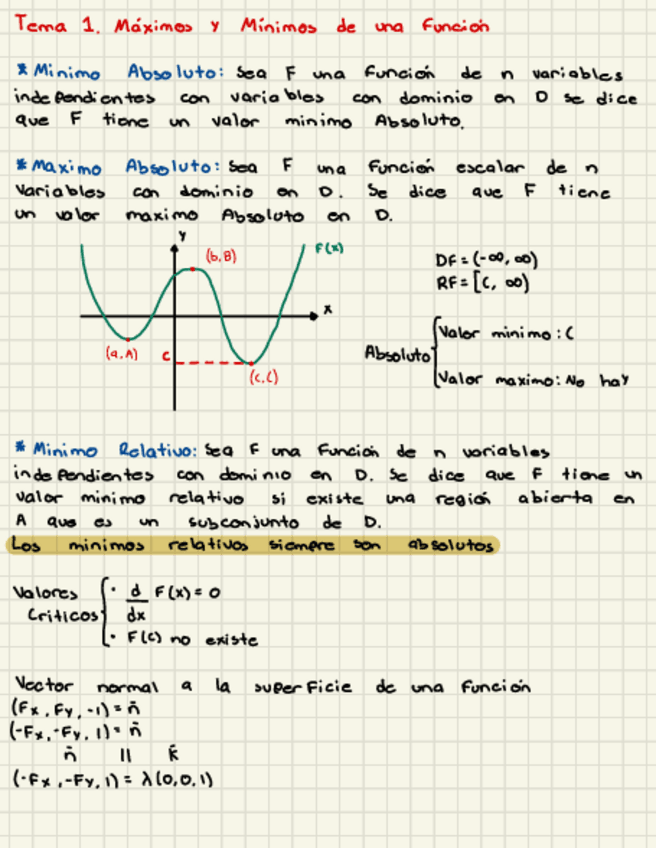 Tema 1. Máximos y Mínimos de una Función
* Minimo Absoluto: Sea F una función de n variables
independientes con variables con dominio en D se dice
que F tiene un valor minimo Absoluto.
* Maximo Absoluto: Sea F una función escalar de n
Variables con dominio en D. Se dice que F tiene
un valor maximo Absoluto en D.
y
(b,B)
F(x)
x
(a,A)
C
(c,C)
DF = (-∞, ∞)
RF = [C, ∞)
Absoluto
Valor minimo: C
Valor maximo: No hay
* Minimo Relativo: Sea F una función de n variables
independientes con dominio en D. Se dice que F tiene un
valor minimo relativo si existe una región abierta en
A que es un subconjunto de D.
Los minimos relativos siempre son absolutos
Valores Criticos
· d/dx F(x) = 0
· F(c) no existe
Vector normal a la superficie de una función
(Fx, Fy, -1) = n̄
(-Fx, -Fy, 1) = n̄
n̄ || k̄
(-Fx, -Fy, 1) = λ(0,0,1)